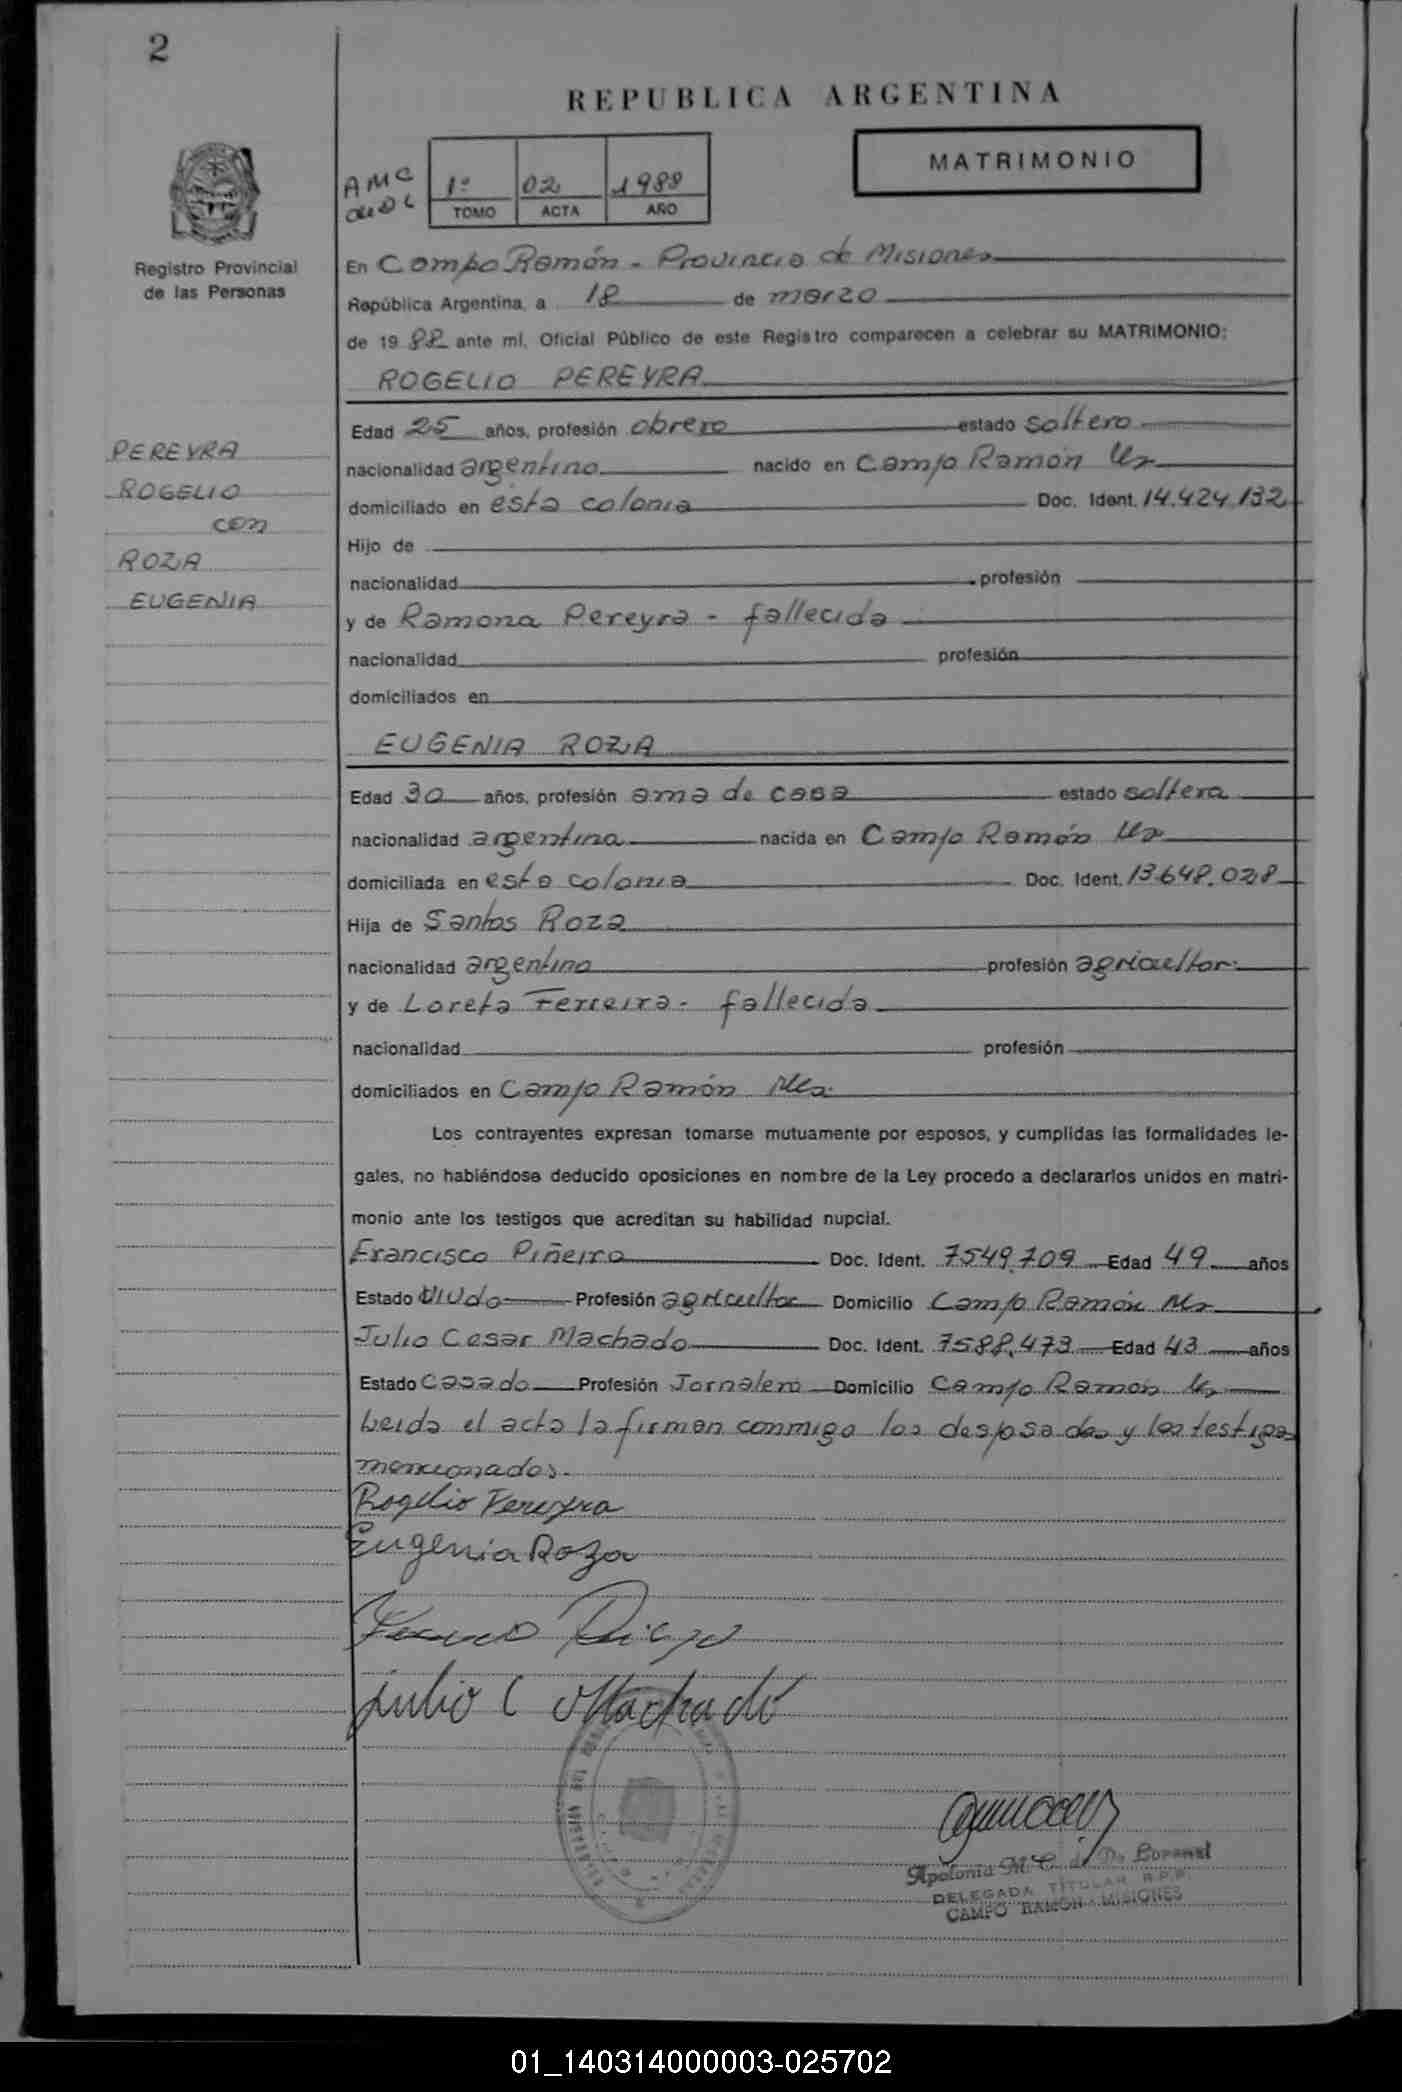 2
REPUBLICA ARGENTINA
MATRIMONIO
AMC
1º 02 1988
TOMO ACTA AÑO
Registro Provincial
de las Personas
En Campo Ramón - Provincia de Misiones
República Argentina, a 18 de marzo
de 1988 ante mí, Oficial Público de este Registro comparecen a celebrar su MATRIMONIO:
ROGELIO PEREYRA
PEREYRA
ROGELIO
con
ROZA
EUGENIA
Edad 25 años, profesión obrero estado soltero
nacionalidad argentino nacido en Campo Ramón Ms
domiciliado en esta colonia Doc. Ident. 14.424.132
Hijo de
nacionalidad profesión
y de Ramona Pereyra - fallecida
nacionalidad profesión
domiciliados en
EUGENIA ROZA
Edad 30 años, profesión ama de casa estado soltera
nacionalidad argentina nacida en Campo Ramón Ms
domiciliada en esta colonia Doc. Ident. 13.648.028
Hija de Santos Roza
nacionalidad argentino profesión agricultor
y de Loreta Ferreira - fallecida
nacionalidad profesión
domiciliados en Campo Ramón Ms
Los contrayentes expresan tomarse mutuamente por esposos, y cumplidas las formalidades le-
gales, no habiéndose deducido oposiciones en nombre de la Ley procedo a declararlos unidos en matri-
monio ante los testigos que acreditan su habilidad nupcial.
Francisco Piñeiro Doc. Ident. 7549.709 Edad 49 años
Estado viudo Profesión agricultor Domicilio Campo Ramón Ms
Julio Cesar Machado Doc. Ident. 7588.473 Edad 43 años
Estado Casado Profesión Jornalero Domicilio Campo Ramón Ms
Leida el acta la firman conmigo los desposados y los testigos
mencionados.
Rogelio Pereyra
Eugenia Roza
julio C Machado
Apolonia M. C. de Coronel
DELEGADA TITULAR R.P.P.
CAMPO RAMON - MISIONES
01_140314000003-025702